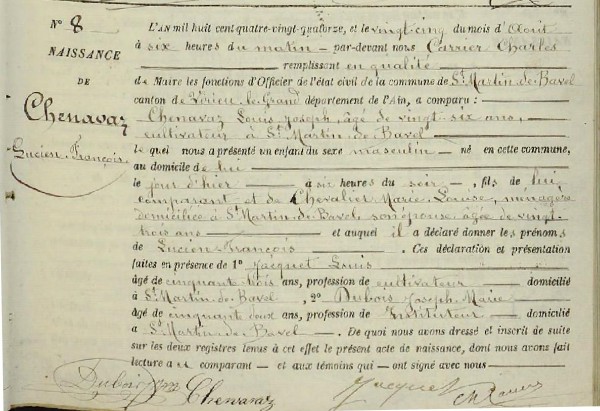 N° 8
NAISSANCE
DE
Chenavaz
Lucien-François
L'AN mil huit cent quatre-vingt-quatorze, et le vingt-cinq du mois d'Août
à six heures du matin — par-devant nous Carrier Charles
remplissant en qualité
de Maire les fonctions d'Officier de l'état civil de la commune de St Martin-de-Bavel
canton de Virieu-le-Grand département de l'Ain, a comparu :
Chenavaz Louis Joseph, âgé de vingt-six ans,
cultivateur à St Martin-de-Bavel
lequel nous a présenté un enfant du sexe masculin — né en cette commune,
au domicile de lui
le jour d'hier — à six heures du soir —, fils de lui
comparant et de Chevalier Marie-Louise, ménagère
domiciliée à St Martin-de-Bavel, son épouse âgée de vingt-
trois ans — et auquel il a déclaré donner les prénoms
de Lucien-François — . Ces déclaration et présentation
faites en présence de 1° Jacquet Louis
âgé de cinquante-trois ans, profession de cultivateur — domicilié
à St Martin-de-Bavel —, 2° Dubois Joseph-Marie
âgé de cinquante deux ans, profession de Instituteur — domicilié
à St Martin-de-Bavel — . De quoi nous avons dressé et inscrit de suite
sur les deux registres tenus à cet effet le présent acte de naissance, dont nous avons fait
lecture au comparant — et aux témoins qui — ont signé avec nous —
Dubois Chenavaz Jacquet